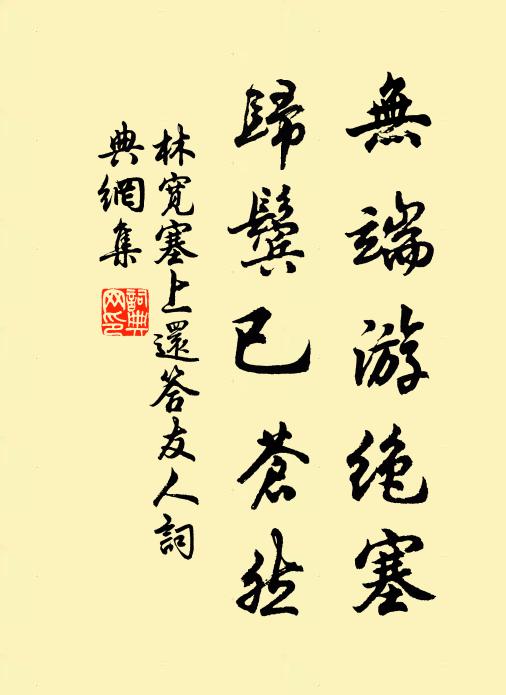 無端游绝塞
歸鬢已蒼然
林寬塞上還答友人詞
典網集
詞典网印